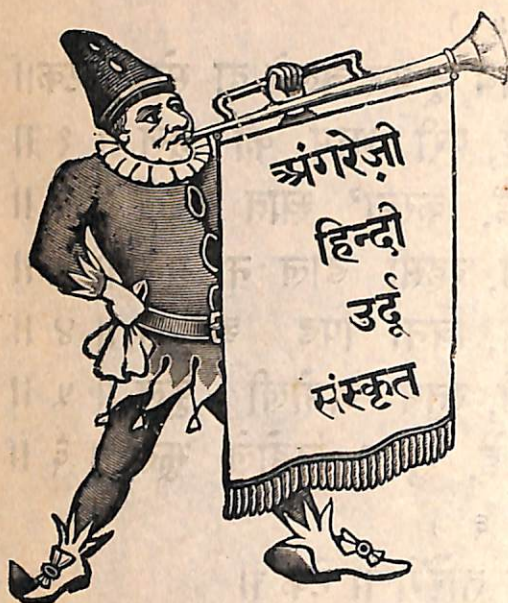 अंगरेज़ी
हिन्दी
उर्दू
संस्कृत